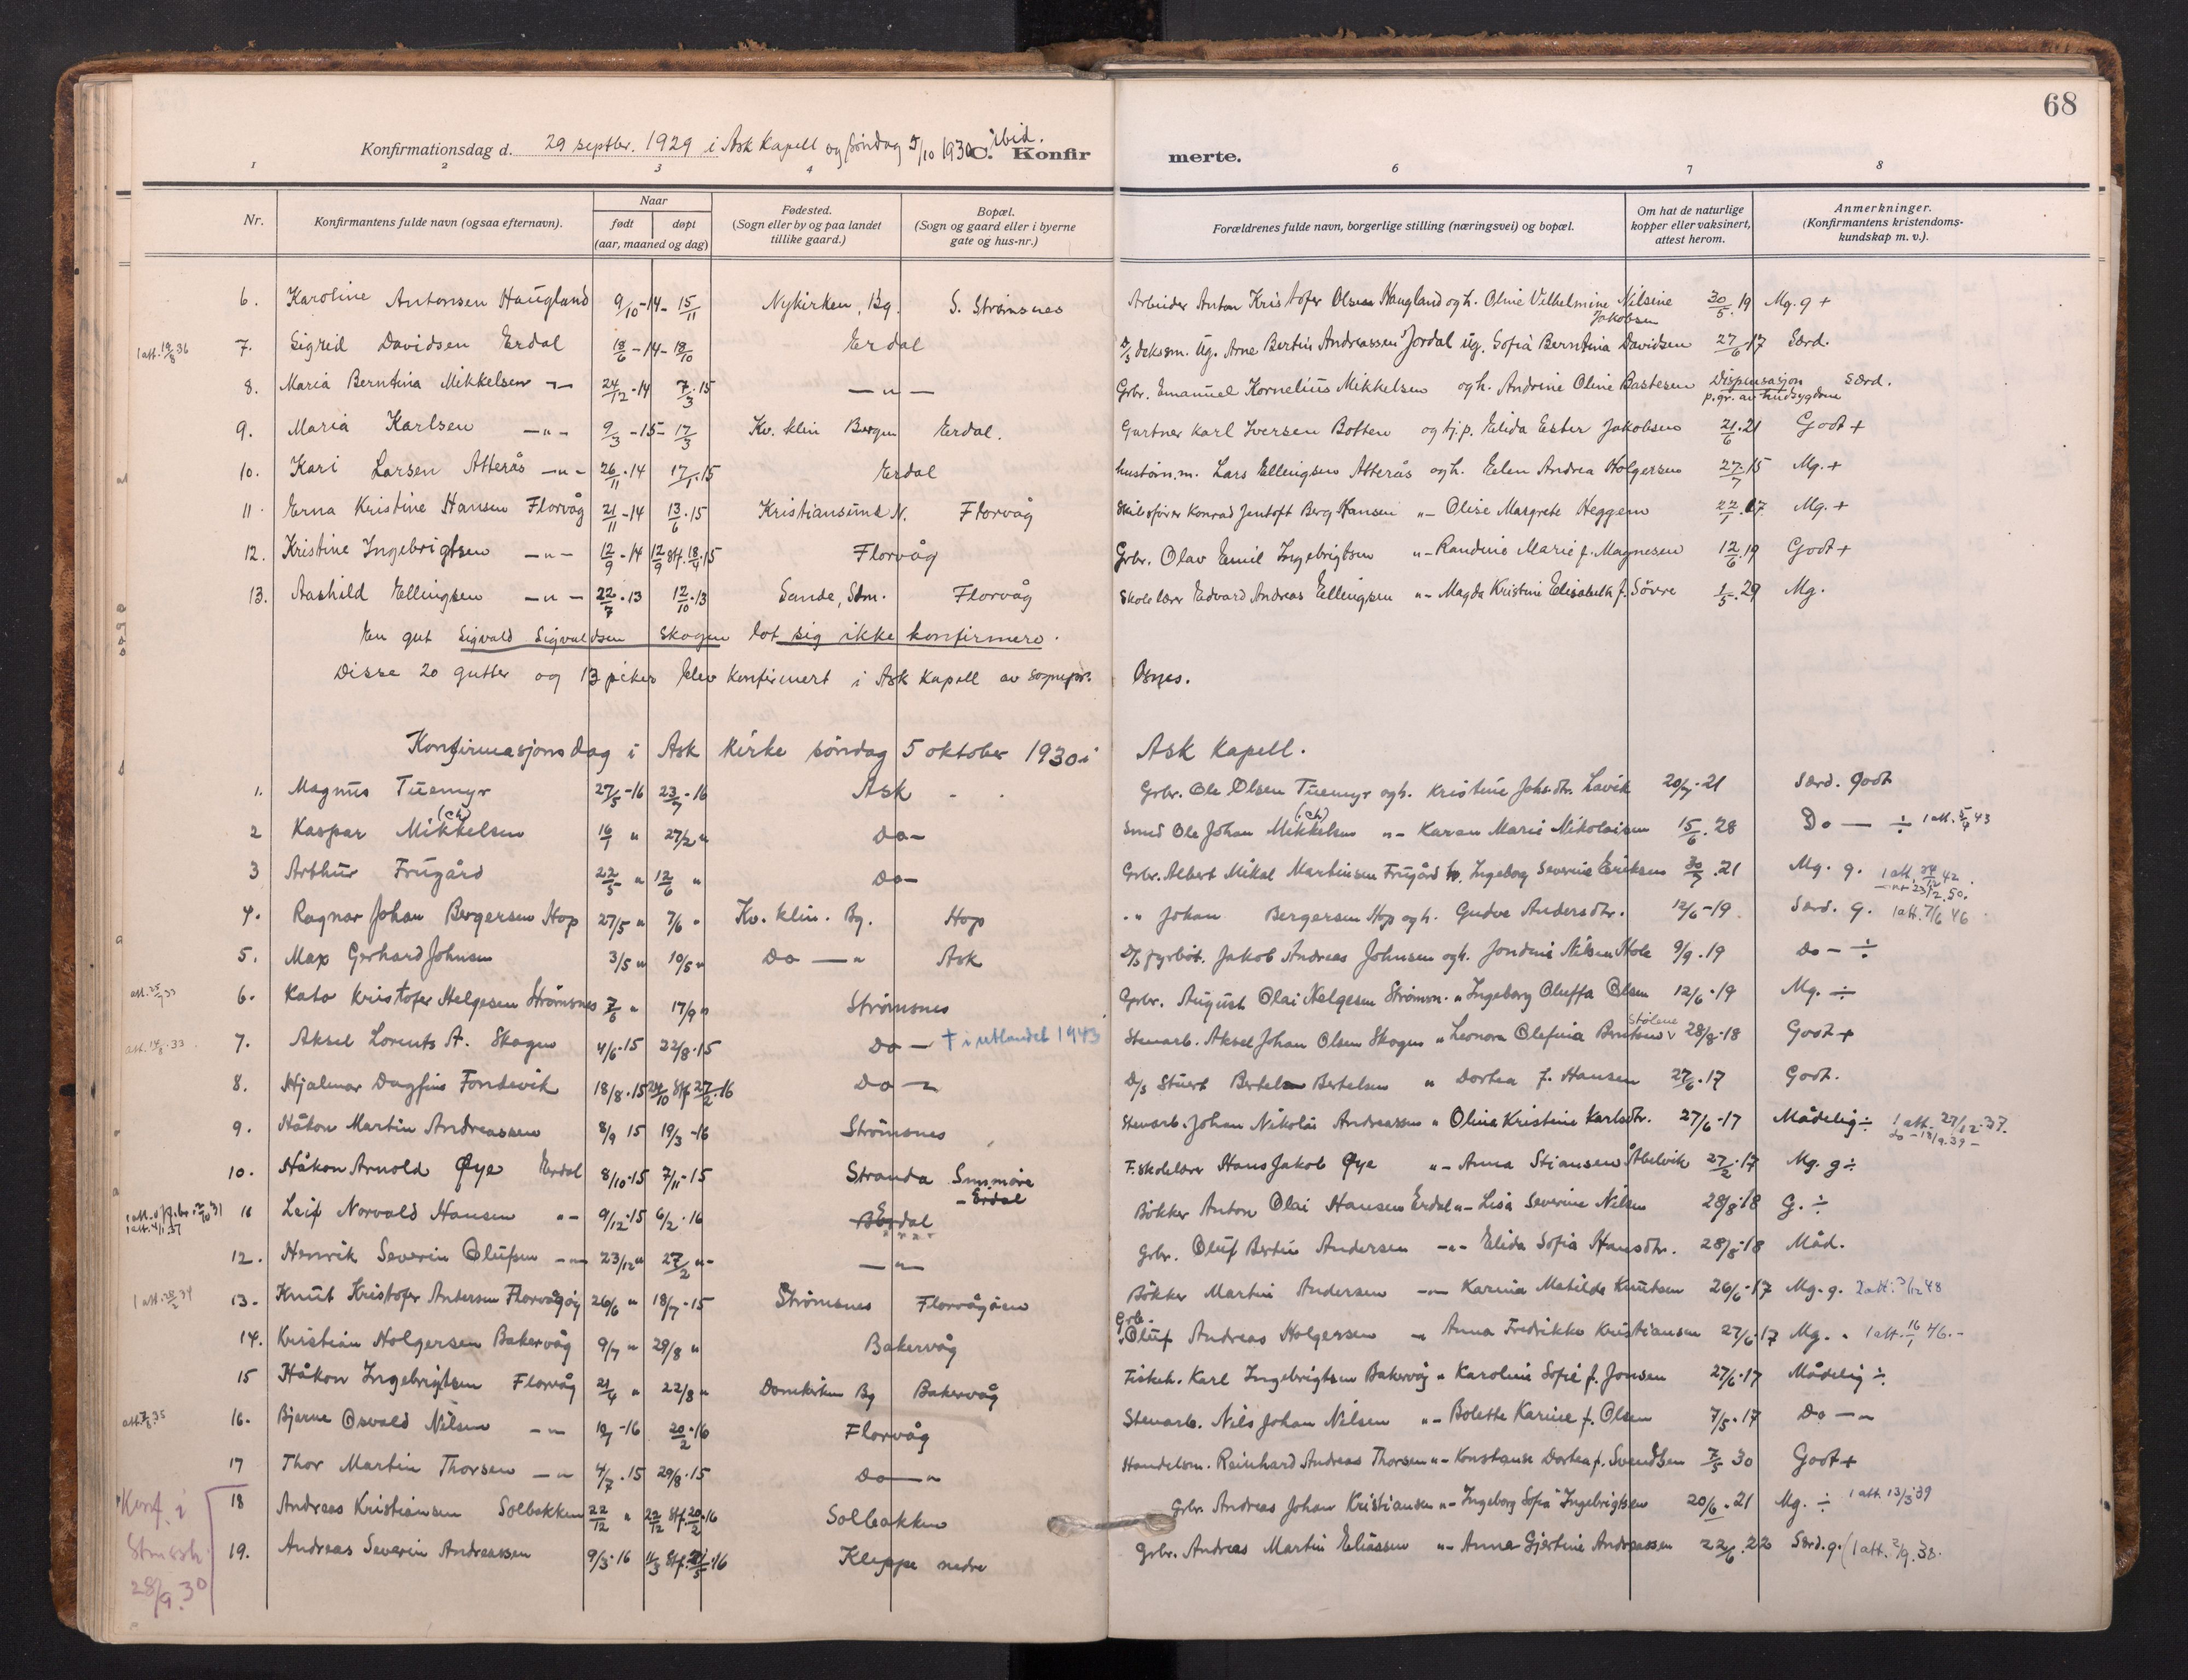 68
Konfirmationsdag d. 29 septbr. 1929 i Ask Kapell og søndag 5/10 1930 ibid. C. Konfirmerte.
1 2 3 4 6 7 8
Nr. Konfirmantens fulde navn (ogsaa efternavn). Naar født døpt (aar, maaned og dag) Fødested. (Sogn eller by og paa landet tillike gaard.) Bopæl. (Sogn og gaard eller i byerne gate og hus-nr.) Forældrenes fulde navn, borgerlige stilling (næringsvei) og bopæl. Om hat de naturlige kopper eller vaksinert, attest herom. Anmerkninger. (Konfirmantens kristendomskundskap m. v.).
6. Karoline Antonsen Haugland 9/10-14- 15/11 Nykirken, Bg. S. Strømsnes Arbeider Anton Kristofer Olsen Haugland og h. Oline Vilhelmine Nilsine Jakobsen 30/5.19 Mg. g +
1 att. 19/8 36 7. Sigrid Davidsen Erdal 18/6-14- 18/10 Erdal D/s deksm. Ug. Arne Bertin Andreassen Jordal ug. Sofia Berntina Davidsen 27/6-17 Særd.
8. Maria Berntina Mikkelsen -"- 24/12-14 7/3.15 -"- Grbr. Emanuel Kornelius Mikkelsen og h. Andrine Oline Bastesen Dispensasjon p. gr. av hudsygdom Særd.
9. Maria Karlsen -"- 9/3-15- 17/3 Kv. klin Bergen Erdal. Gartner Karl Iversen Botten og tj.p. Elida Ester Jakobsen 21/6.21 Godt +
10. Kari Larsen Atterås -"- 26/11.14 17/1.15 Erdal Lars Ellingsen Atterås og h. Elen Andrea Holgersen 27/7.15 Mg. +
11. Erna Kristine Hansen Florvåg 21/11-14 13/6.15 Kristiansund N. Florvåg Skibsfører Konrad Jentoft Berg Hansen "- Olise Margrete Heggem 22/1.17 Mg. +
12. Kristine Ingebrigtsen -"- 12/9-14 12/9 Stf. 18/4.15 Florvåg Grbr. Olav Emil Ingebrigtsen "- Randine Marie f. Magnesen 12/6.19 Godt +
13. Aashild Ellingsen -"- 22/7.13 12/10.13 Sande, Sdm. Florvåg Skolelærer Edvard Andreas Ellingsen "- Magda Kristine Elisabeth f. Søvre 1/5.29 Mg.
En gut Sigvald Sigvaldsen Skogen lot sig ikke konfirmere.
Disse 20 gutter og 13 piker blev konfirmert i Ask Kapell av sognepr. Osnes.
Konfirmasjonsdag i Ask Kirke søndag 5 oktober 1930 i Ask Kapell.
1. Magnus Tuemyr 27/5-16 23/7-16 Ask Grbr. Ole Olsen Tuemyr og h. Kristine Johsdtr. Lavik 20/7-21 Særd. Godt
2 Kaspar Mikkelsen (ch) 16/1 " 27/2 " Do- Smed Ole Johan Mikkelsen (ch) "- Karen Marie Nikolaisen 15/6.28 Do - ÷ 1 att. 5/4 43
3 Arthur Frugård 22/3 " 12/6 " Do- Grbr. Albert Mikal Martinsen Frugård h. Ingeborg Severine Eriksen 30/7.21 Mg. g. 1 att. 42. -"- 23/2.50.
4. Ragnar Johan Bergersen Hop 27/5 " 7/6 " Kv. klin. Bg. Hop -" Johan Bergersen Hop og h. Gudve Andersdtr. 12/6-19 Særd. g. 1 att. 7/6 46
5. Max Gerhard Johnsen 3/5 " 10/5 " Do - " Ask D/s fyrbøt. Jakob Andreas Johnsen og h. Jondine Nilsen Hole 9/9.19 Do - ÷
att. 25/7 33 6. Kato Kristofer Helgesen Strømsnes 7/6 " 17/9 " Strømsnes Grbr. August Olai Helgesen Strømsn. " Ingeborg Oluffa Olsen 12/6.19 Mg. ÷
att. 33. 7. Aksel Lorents A. Skogen 4/6.15 22/8.15 Do - † i utlandet 1943 Stenarb. Aksel Johan Olsen Skogen " Leonora Olefina Berntsen v Stølene 28/8.18 Godt +
8. Hjalmar Dagfin Fondevik 18/8.15 24/10 Stf. 27/2.16 Do - " D/s Stuert Bertel Bertelsen " Dortea f. Hansen 27/6.17 Godt.
9. Håkon Martin Andreassen 8/9 15 19/3-16 Strømsnes Stenarb. Johan Nikolai Andreassen " Oline Kristine Karlsdtr. 27/6-17 Mådelig ÷ 1 att. 27/12.37. do - 18/9.39 -
10. Håkon Arnold Øye Erdal 8/10.15 7/11-15 Stranda Sunnmøre - Erdal F. skolelærer Hans Jakob Øye "- Anna Stiansen Åbelvik 27/2.17 Mg. g ÷
1 att. 4/1 37 11 Leif Norvald Hansen "- 9/12.15 6/2.16 Erdal Bøkker Anton Olai Hansen Erdal "- Lisa Severine Nilsen 28/8.18 G. ÷
12. Henrik Severin Olufsen -"- 23/12 " 27/2 "- -"- Grbr. Oluf Bertin Andersen -"- Elida Sofia Hansdtr. 28/8.18 Måd.
1 att. 28/2 34 13. Knut Kristofer Andersen Florvågøy 26/6 " 18/7.15 Strømsnes Florvågøen Bøkker Martin Andersen -"- Karina Matilde Knutsen 26/6.17 Mg. g. 2 att. 3/12 48
14. Kristian Holgersen Bakervåg 9/7 " 29/8 " Bakervåg Grb. Oluf Andreas Holgersen -" Anna Fredrikke Kristiansen 27/6.17 Mg. " 1 att. 16/1 46.-
15 Håkon Ingebrigtsen Florvåg 21/4 " 22/8 " Domkirken Bg Bakervåg Fiskeh. Karl Ingebrigtsen Bakervåg " Karoline Sofie f. Jonsen 27/6.17 Mådelig ÷
att. 35 16. Bjarne Osvald Nilsen -"- 10/1-16 20/2.16 Florvåg Stenarb. Nils Johan Nilsen "- Bolette Karine f. Olsen 7/5.17 Do - "
17 Thor Martin Thorsen -" 4/7.15 29/8.15 Do - " Handelsm. Reinhard Andreas Thorsen "- Konstanse Dortea f. Svendsen 7/5 30 Godt +
Konf. i 18 Andreas Kristiansen Solbakken 22/12 " 22/12 Stf. 20/2.16 Solbakken Grbr. Andreas Johan Kristiansen "- Ingeborg Sofia Ingebrigtsen 20/6.21 Mg. ÷ 1 att. 13/3 39
19. Andreas Severin Andreassen 9/3.16 11/3 Stf. 21/5.16 Kleppe nedre Grbr. Andreas Martin Eliassen "- Anna Gjertine Andreassen 22/6.22 Særd. g. (1 att. 2/9.38.
28/9.30